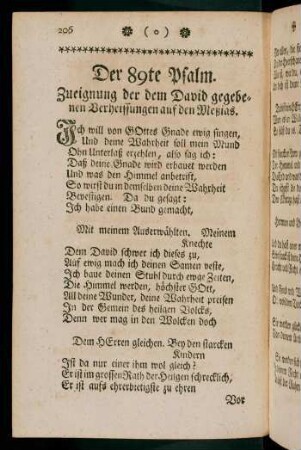 206 * ( o ) *
Der 89te Psalm.
Zueignung der dem David gegebe-
nen Verheissungen auf den Meßias.
Ich will von GOttes Gnade ewig singen,
Und deine Wahrheit soll mein Mund
Ohn Unterlaß erzehlen, also sag ich:
Daß deine Gnade wird erbauet werden
Und was den Himmel anbetrift,
So wirst du in demselben deine Wahrheit
Bevestigen. Da du gesagt:
Ich habe einen Bund gemacht,
Mit meinem Auserwählten. Meinem
Knechte
Dem David schwer ich dieses zu,
Auf ewig mach ich deinen Samen veste,
Ich baue deinen Stuhl durch ewge Zeiten,
Die Himmel werden, höchster GOtt,
All deine Wunder, deine Wahrheit preisen
In der Gemein des heilgen Volcks,
Denn wer mag in den Wolcken doch
Dem HErren gleichen. Bey den starcken
Kindern
Ist da nur einer ihm wol gleich?
Er ist im grossen Rath der Heilgen schrecklich,
Er ist aufs ehrerbietigste zu ehren
Vor